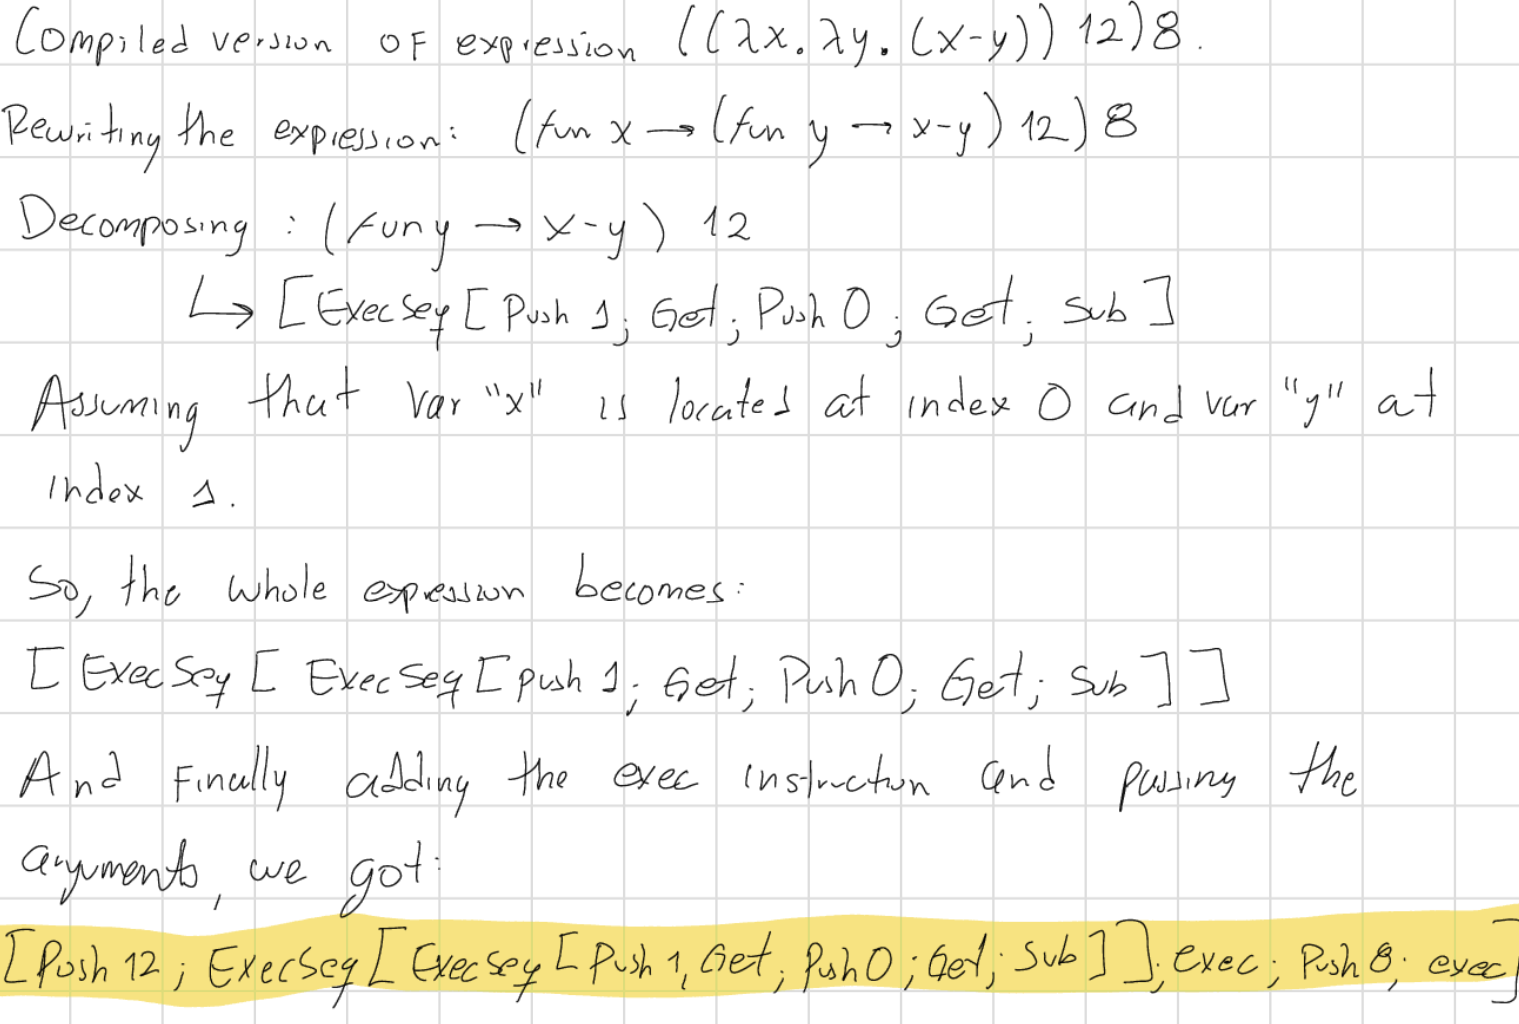 Compiled version of expression ((λx.λy.(x-y)) 12)8.
Rewriting the expression: (fun x → (fun y → x-y) 12) 8
Decomposing : (fun y → x-y) 12
↳ [ExecSeq [Push 1; Get; Push 0; Get; Sub]
Assuming that var "x" is located at index 0 and var "y" at
index 1.
So, the whole expression becomes:
[ExecSeq [ ExecSeq [push 1; Get; Push 0; Get; Sub ] ]
And Finally adding the exec instruction and passing the
arguments, we got:
[Push 12; ExecSeq [ExecSeq [Push 1, Get; Push 0; Get; Sub]]; exec; Push 8; exec]